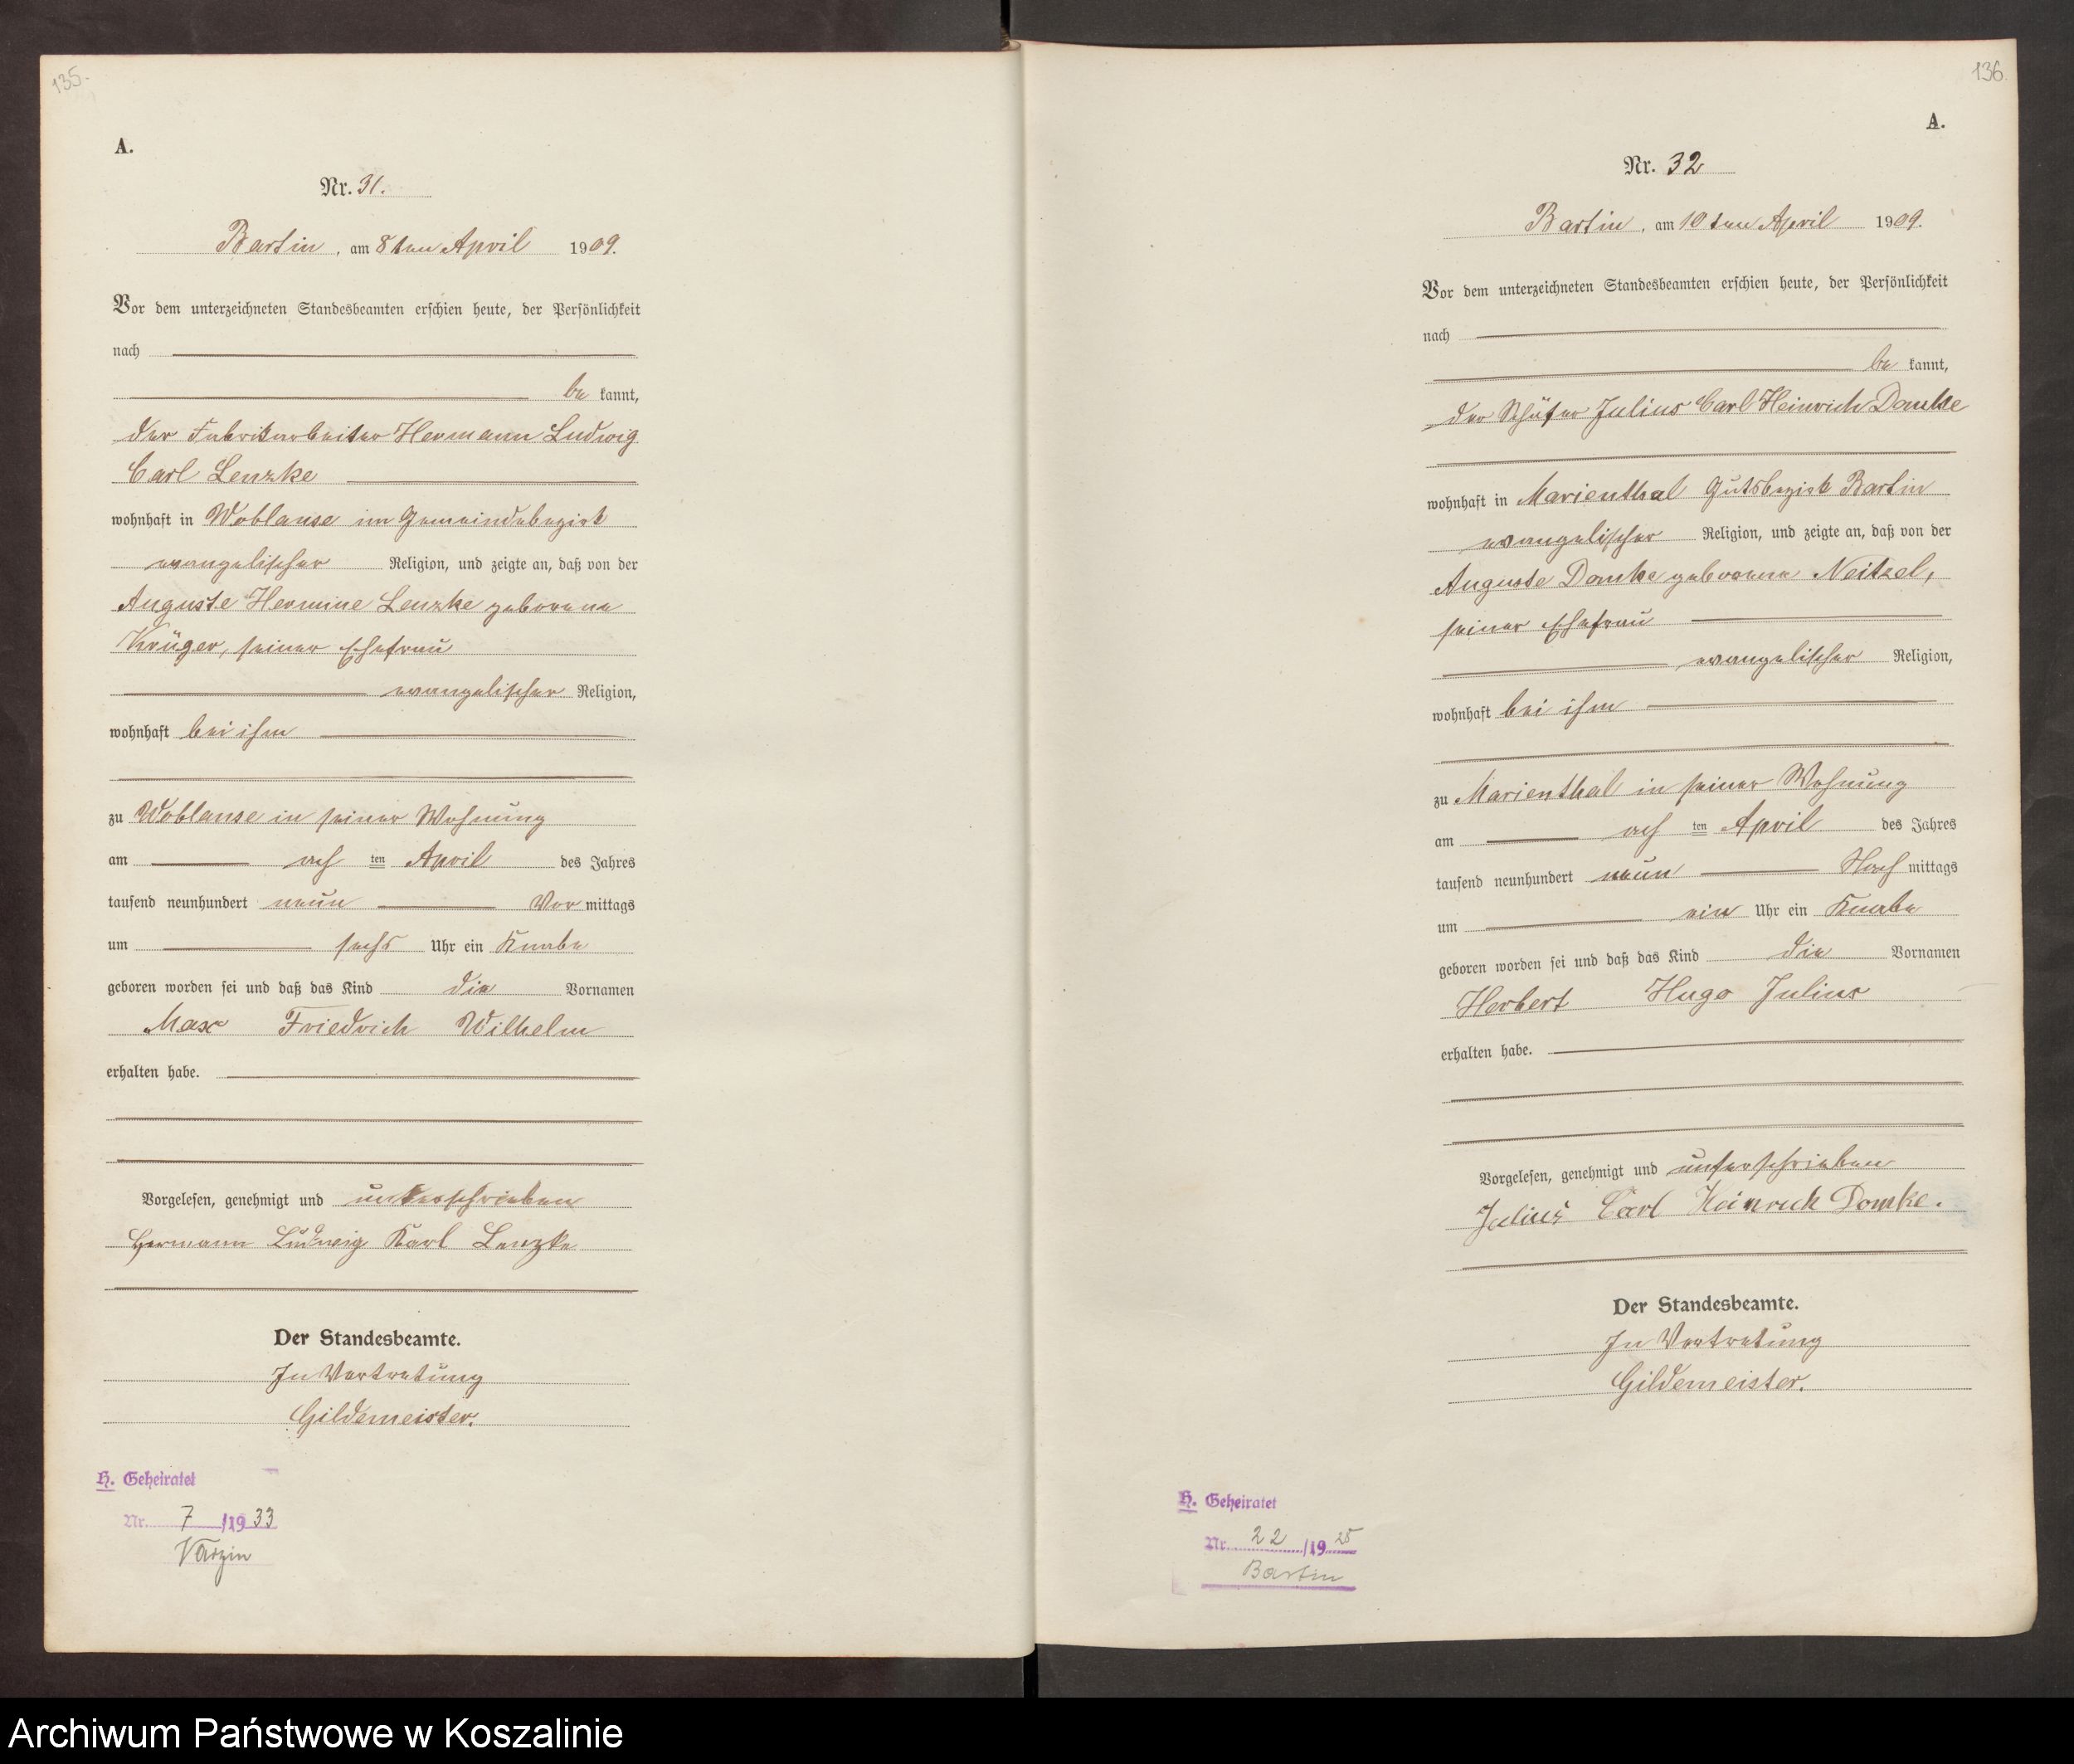 135.
A.
Nr. 31.
Bartin, am 8ten April 1909.
Vor dem unterzeichneten Standesbeamten erschien heute, der Persönlichkeit
nach
be kannt,
der Fabrikarbeiter Hermann Ludwig
Carl Lenzke
wohnhaft in Woblanse im Gemeindebezirk
evangelischer Religion, und zeigte an, daß von der
Auguste Hermine Lenzke geborene
Krüger, seiner Ehefrau
evangelischer Religion,
wohnhaft bei ihm
zu Woblanse in seiner Wohnung
am acht ten April des Jahres
tausend neunhundert neun Vor mittags
um sechs Uhr ein Knabe
geboren worden sei und daß das Kind die Vornamen
Max Friedrich Wilhelm
erhalten habe.
Vorgelesen, genehmigt und unterschrieben
Hermann Ludwig Karl Lenzke
Der Standesbeamte.
In Vertretung
Gildemeister.
H. Geheiratet
Nr. 7 /1933
Varzin
136.
A.
Nr. 32
Bartin, am 10ten April 1909.
Vor dem unterzeichneten Standesbeamten erschien heute, der Persönlichkeit
nach
be kannt,
der Schäfer Julius Carl Heinrich Domke
wohnhaft in Marienthal Gutsbezirk Bartin
evangelischer Religion, und zeigte an, daß von der
Auguste Domke geborene Neitzel,
seiner Ehefrau
evangelischer Religion,
wohnhaft bei ihm
zu Marienthal in seiner Wohnung
am acht ten April des Jahres
tausend neunhundert neun Nach mittags
um ein Uhr ein Knabe
geboren worden sei und daß das Kind die Vornamen
Herbert Hugo Julius
erhalten habe.
Vorgelesen, genehmigt und unterschrieben
Julius Carl Heinrich Domke.
Der Standesbeamte.
In Vertretung
Gildemeister.
H. Geheiratet
Nr. 22 /19
Bartin
Archiwum Państwowe w Koszalinie